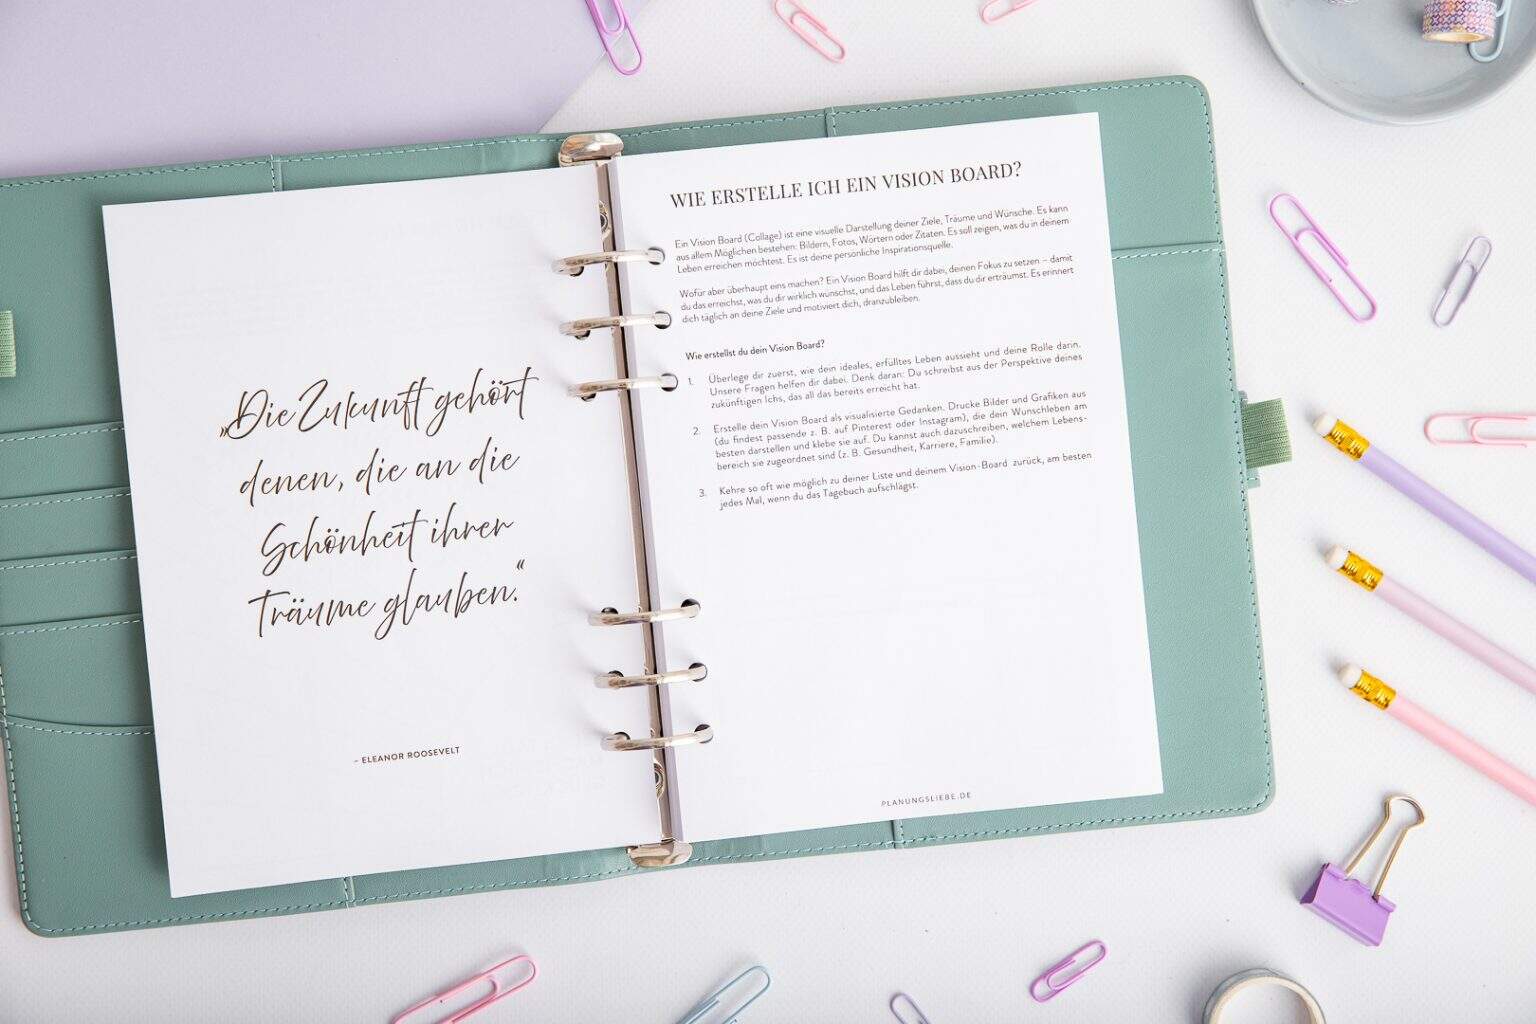 „Die Zukunft gehört
denen, die an die
Schönheit ihrer
Träume glauben.“
– ELEANOR ROOSEVELT
WIE ERSTELLE ICH EIN VISION BOARD?
Ein Vision Board (Collage) ist eine visuelle Darstellung deiner Ziele, Träume und Wünsche. Es kann
aus allem Möglichen bestehen: Bildern, Fotos, Wörtern oder Zitaten. Es soll zeigen, was du in deinem
Leben erreichen möchtest. Es ist deine persönliche Inspirationsquelle.
Wofür aber überhaupt eins machen? Ein Vision Board hilft dir dabei, deinen Fokus zu setzen – damit
du das erreichst, was du dir wirklich wünschst, und das Leben führst, dass du dir erträumst. Es erinnert
dich täglich an deine Ziele und motiviert dich, dranzubleiben.
Wie erstellst du dein Vision Board?
1. Überlege dir zuerst, wie dein ideales, erfülltes Leben aussieht und deine Rolle darin.
Unsere Fragen helfen dir dabei. Denk daran: Du schreibst aus der Perspektive deines
zukünftigen Ichs, das all das bereits erreicht hat.
2. Erstelle dein Vision Board als visualisierte Gedanken. Drucke Bilder und Grafiken aus
(du findest passende z. B. auf Pinterest oder Instagram), die dein Wunschleben am
besten darstellen und klebe sie auf. Du kannst auch dazuschreiben, welchem Lebens-
bereich sie zugeordnet sind (z. B. Gesundheit, Karriere, Familie).
3. Kehre so oft wie möglich zu deiner Liste und deinem Vision-Board zurück, am besten
jedes Mal, wenn du das Tagebuch aufschlägst.
PLANUNGSLIEBE.DE